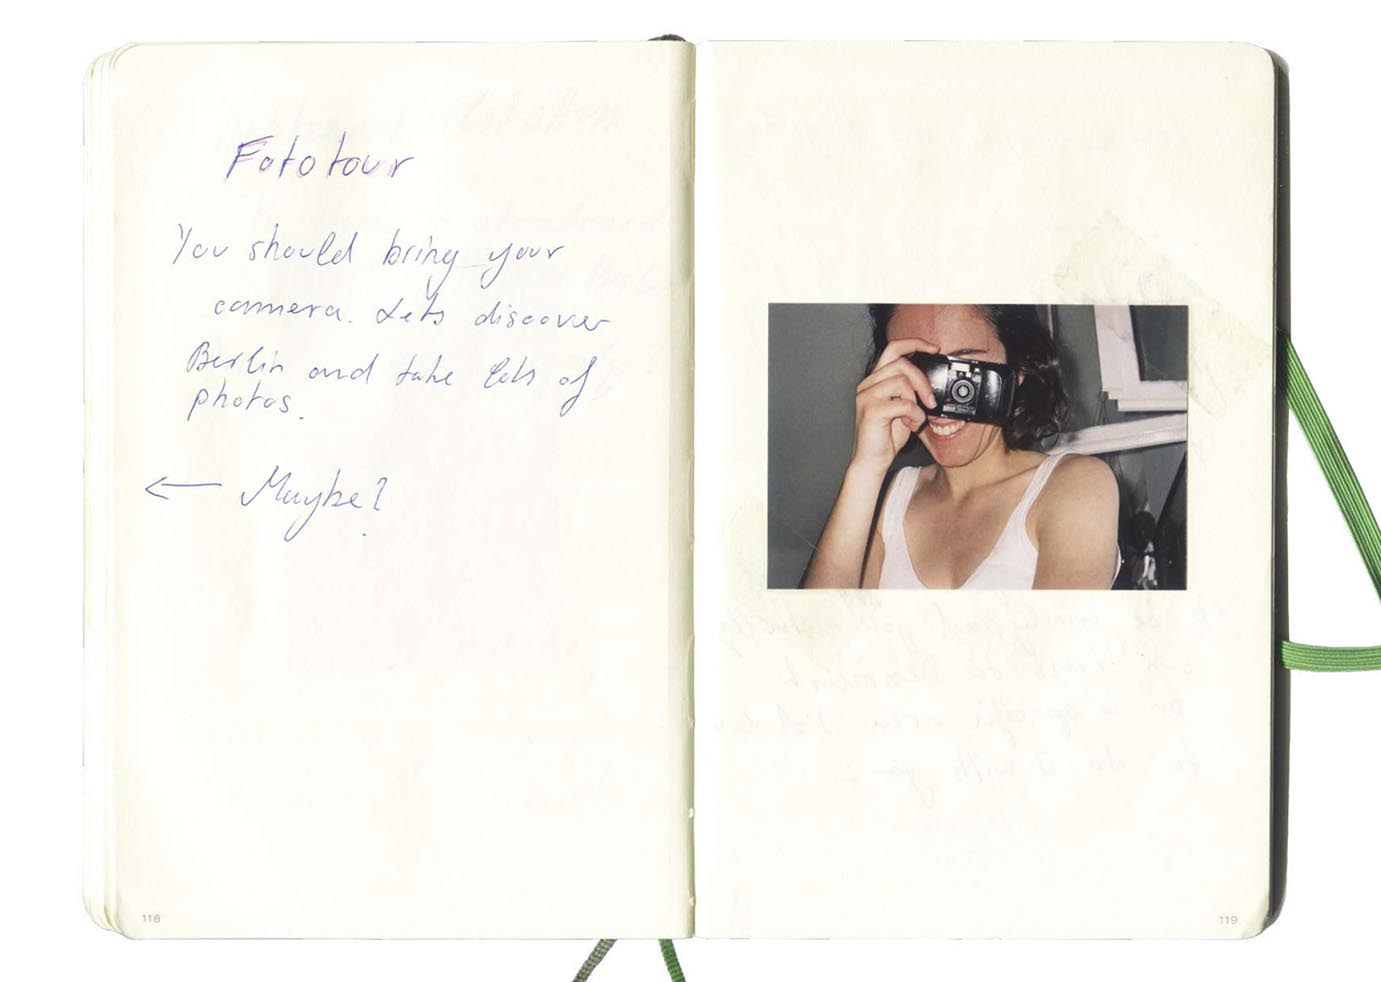 Fototour
You should bring your
camera. Lets discover
Berlin and take lots of
photos.
← Maybe?
118
119